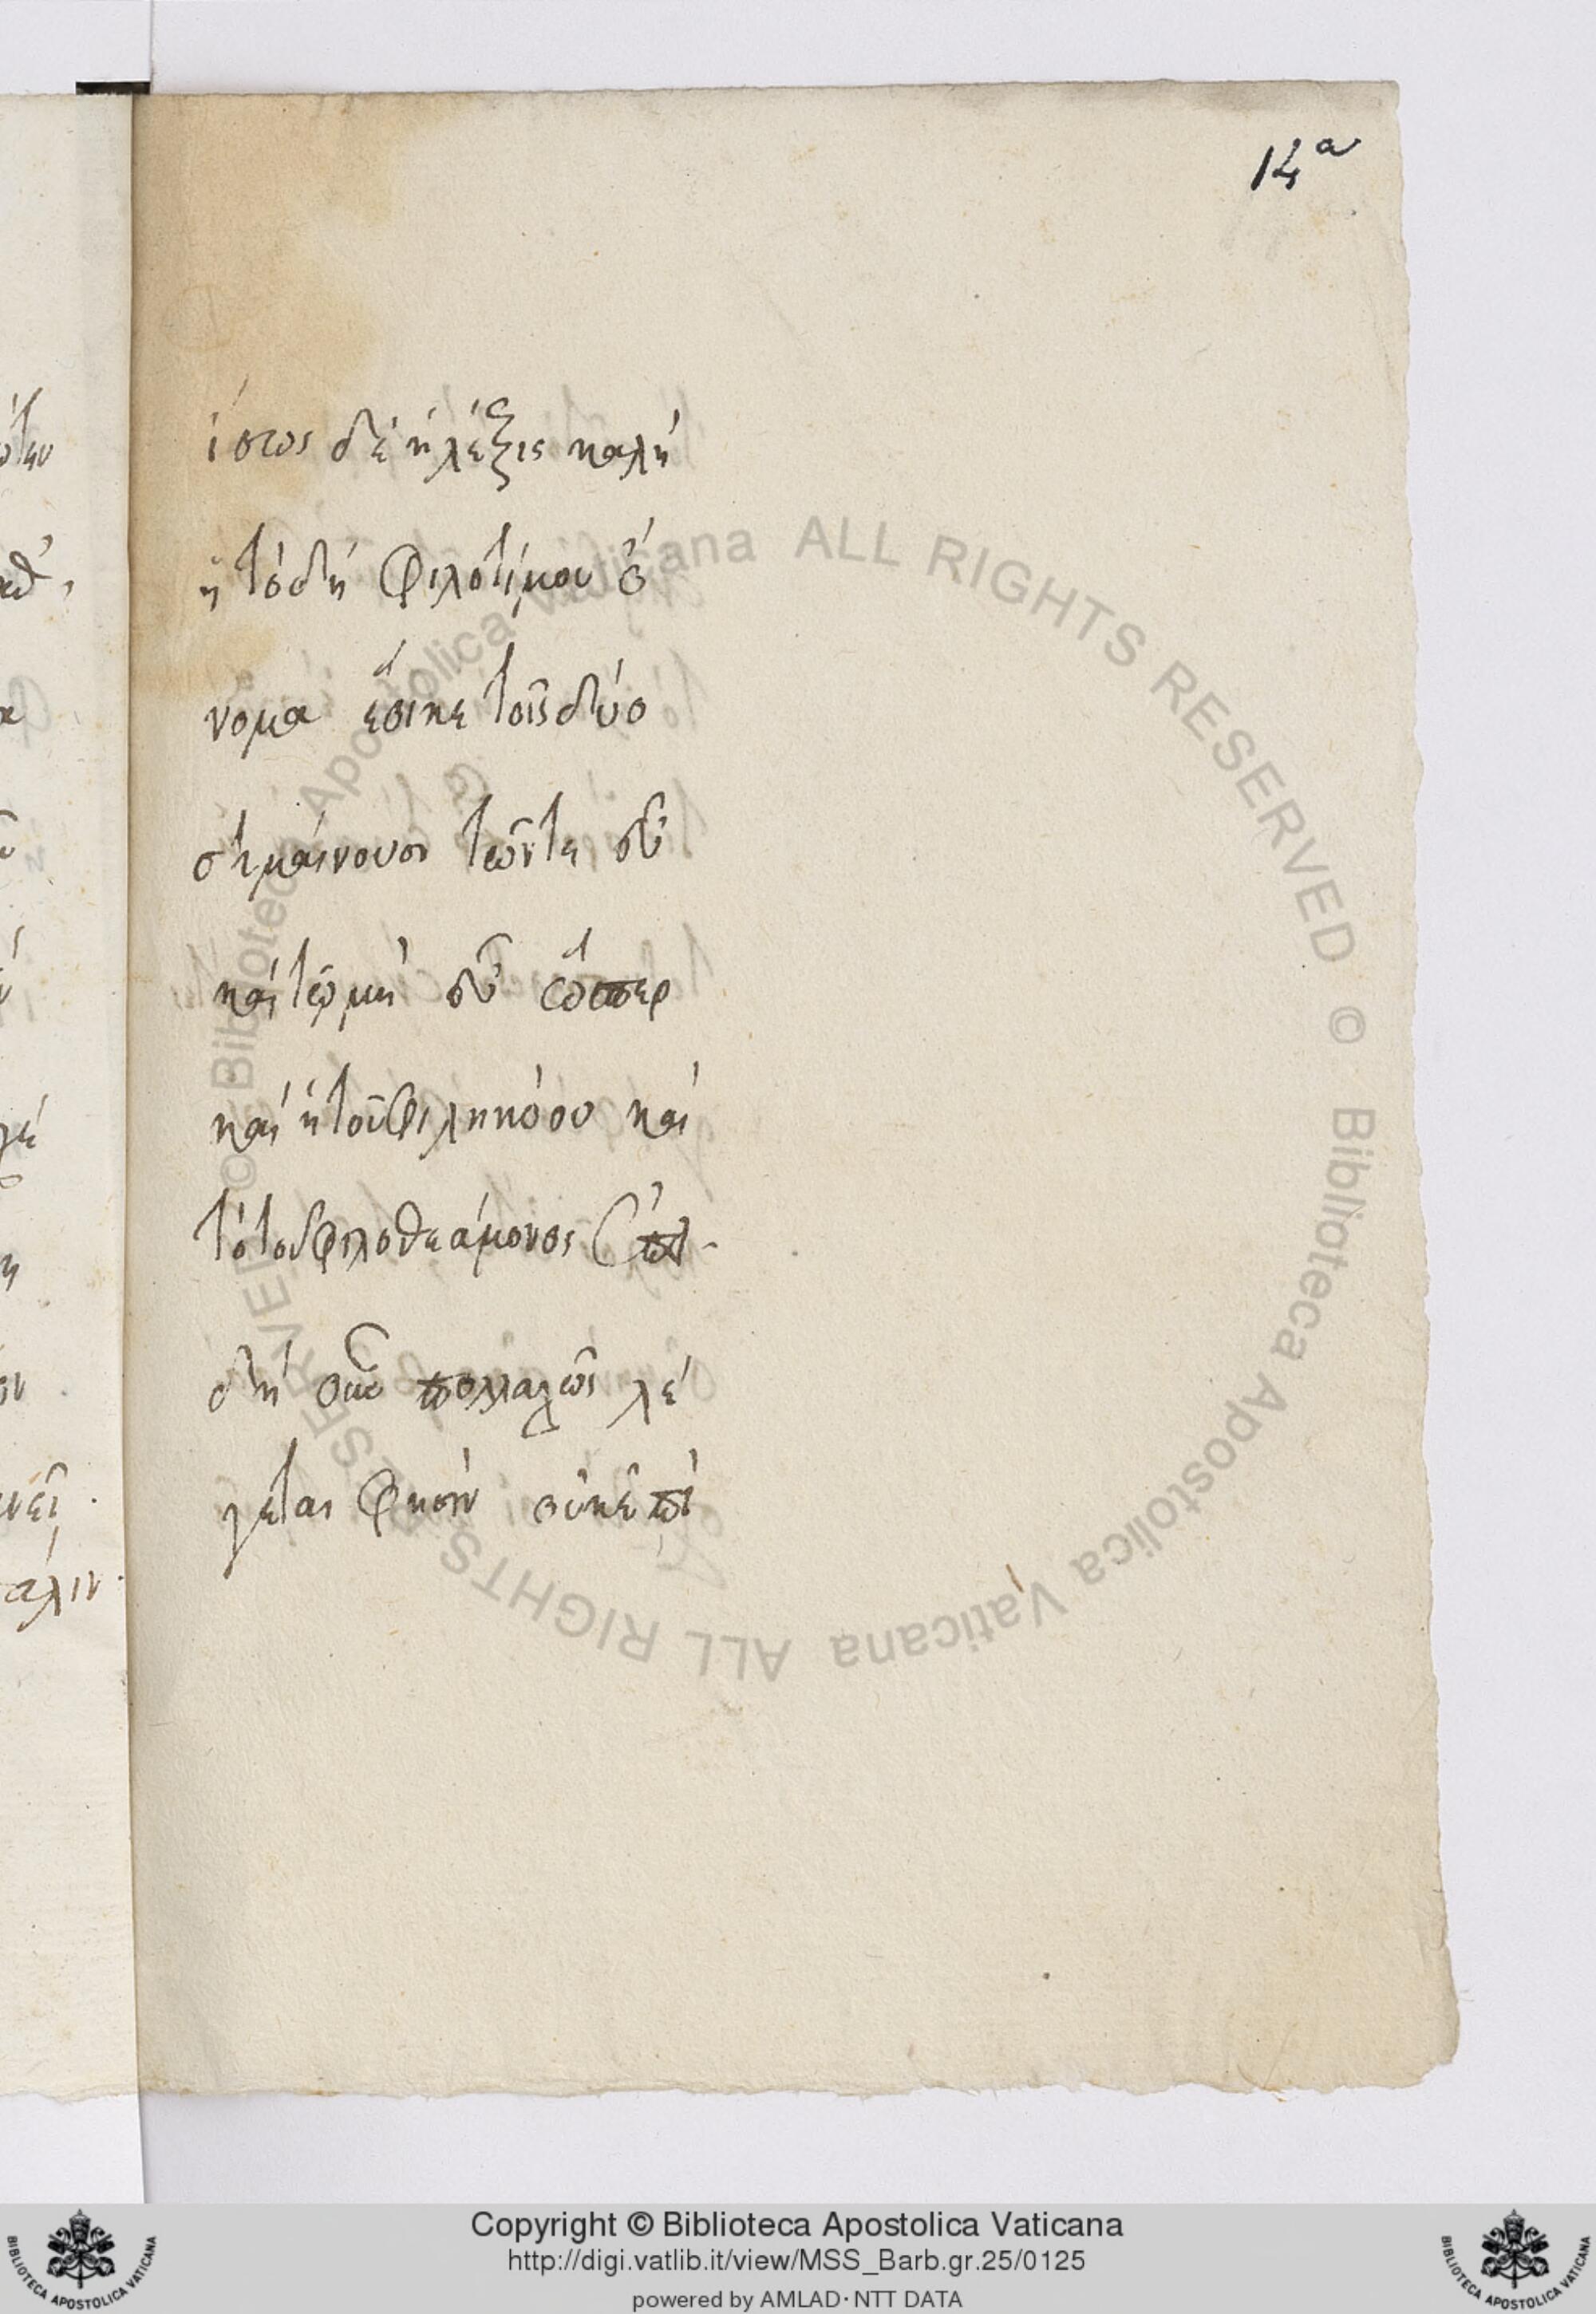 14ª
ίστος δὲ ἡ λέξις καλή
ἢ τὸ δὴ φιλοτίμου ὄ
νομα ἔοικε τοῖς δύο
σημαίνουσι τῶν τε οὗ
καὶ τῷ μὴ οὗ ὥσπερ
καὶ ἡ τοῦ φιληκόου καὶ
τὸ τοῦ φιλοθεάμονος
δὴ οὖν πολλαχῶς λέ
γεται φησὶν οὐκ ἐπὶ
άλιν
© Biblioteca Apostolica Vaticana ALL RIGHTS RESERVED © Biblioteca Apostolica Vaticana ALL RIGHTS RESERVED
Copyright © Biblioteca Apostolica Vaticana
http://digi.vatlib.it/view/MSS_Barb.gr.25/0125
powered by AMLAD·NTT DATA
BIBLIOTECA APOSTOLICA VATICANA
BIBLIOTECA APOSTOLICA VATICANA